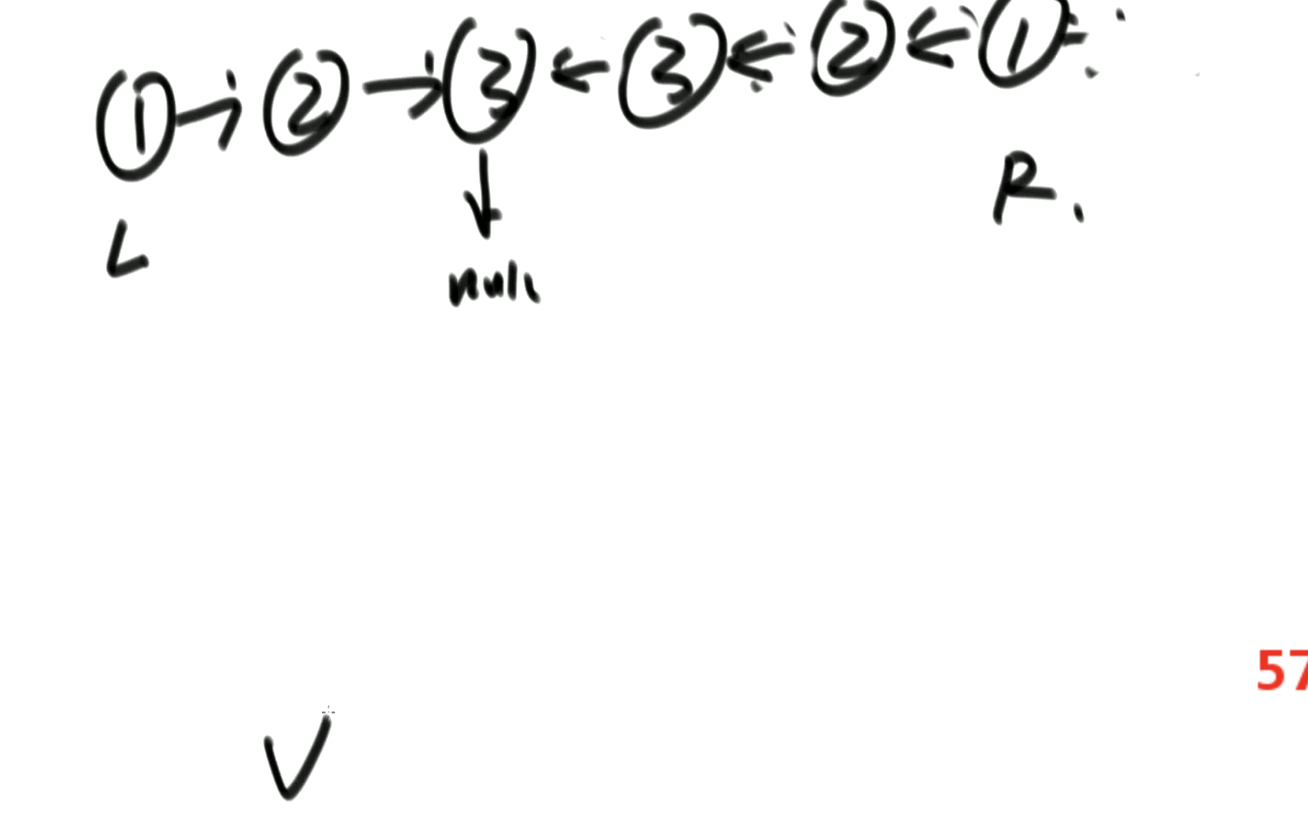 ① → ② → ③ ← ③ ← ② ← ①
L
R.
null
57
V